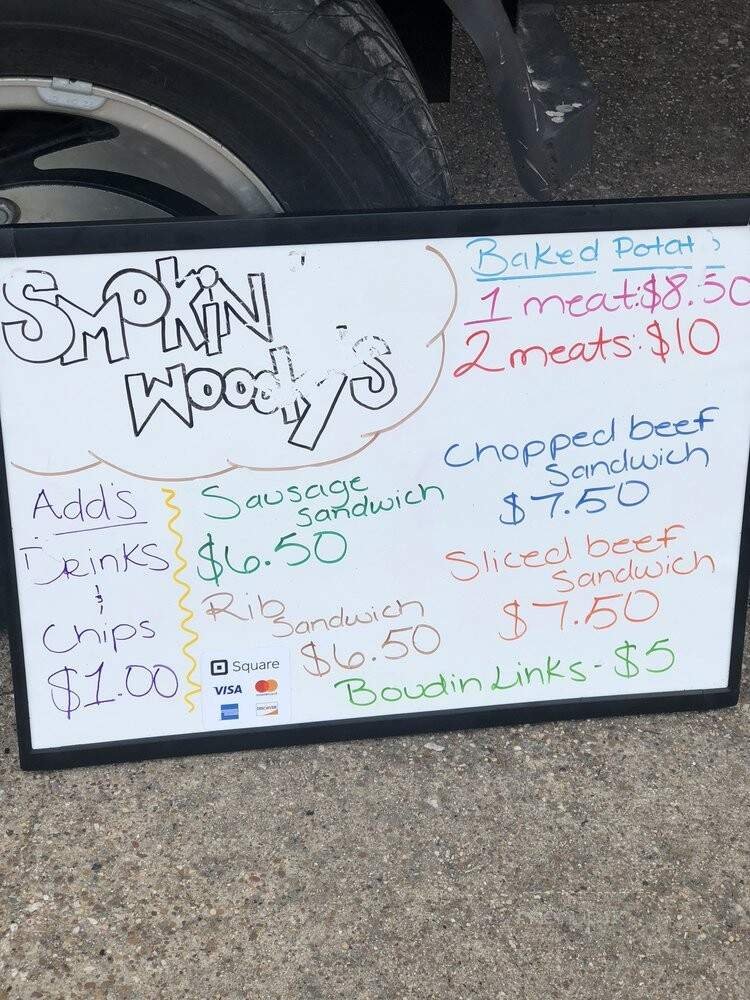 SMOKIN'
WOODY'S
Baked
1 meat:$8.50
2 meats:$10
Chopped beef
Sandwich
$7.50
Sliced beef
Sandwich
$7.50
Sausage
Sandwich
$6.50
Rib
Sandwich
$6.50
Boudin Links - $5
Add's
Drinks
&
Chips
$1.00
Square
VISA